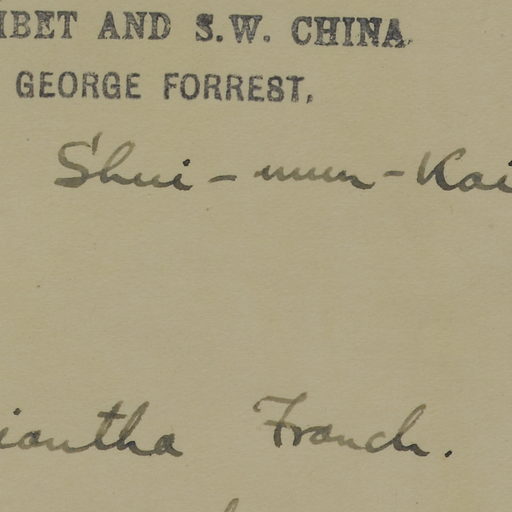 IBET AND S.W. CHINA.
GEORGE FORREST.
Shui-mun-Kai
iantha Franch.